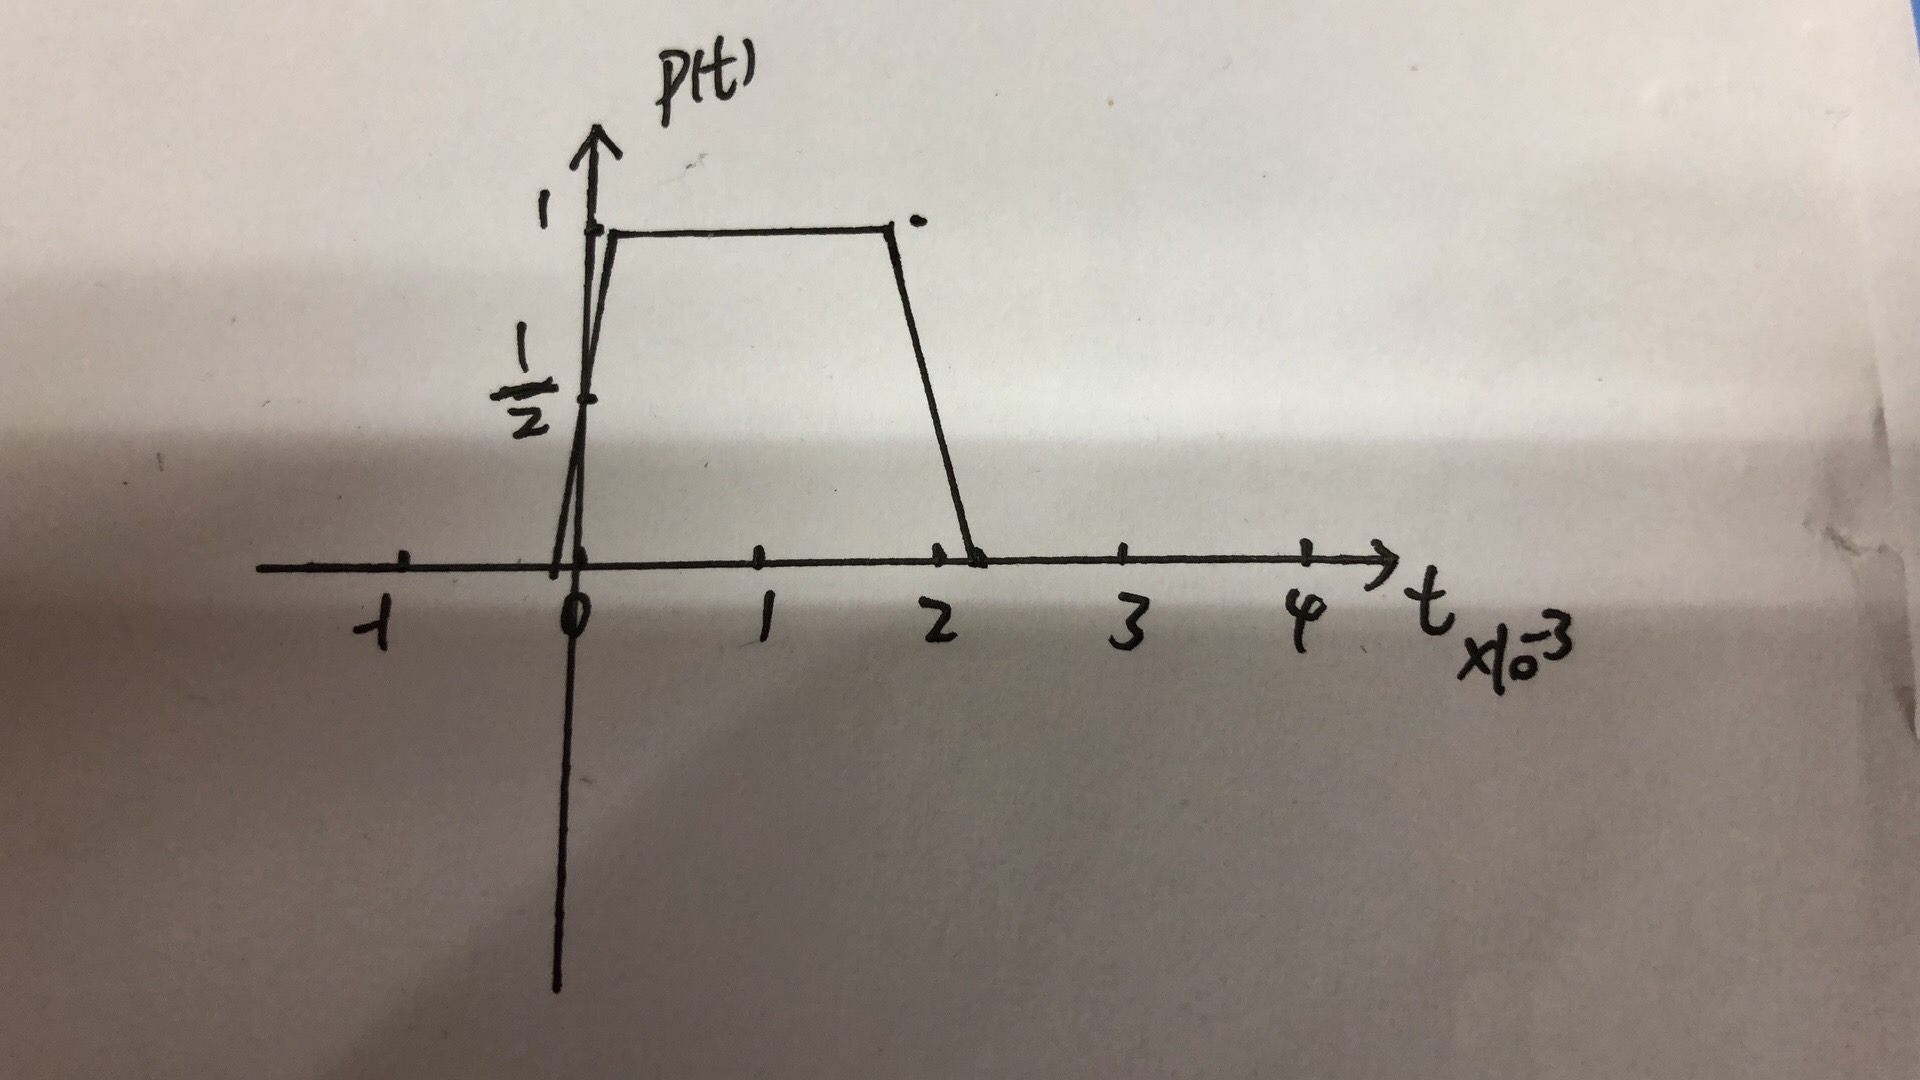 p(t)
1
1/2
-1 0 1 2 3 4 t
×10⁻³